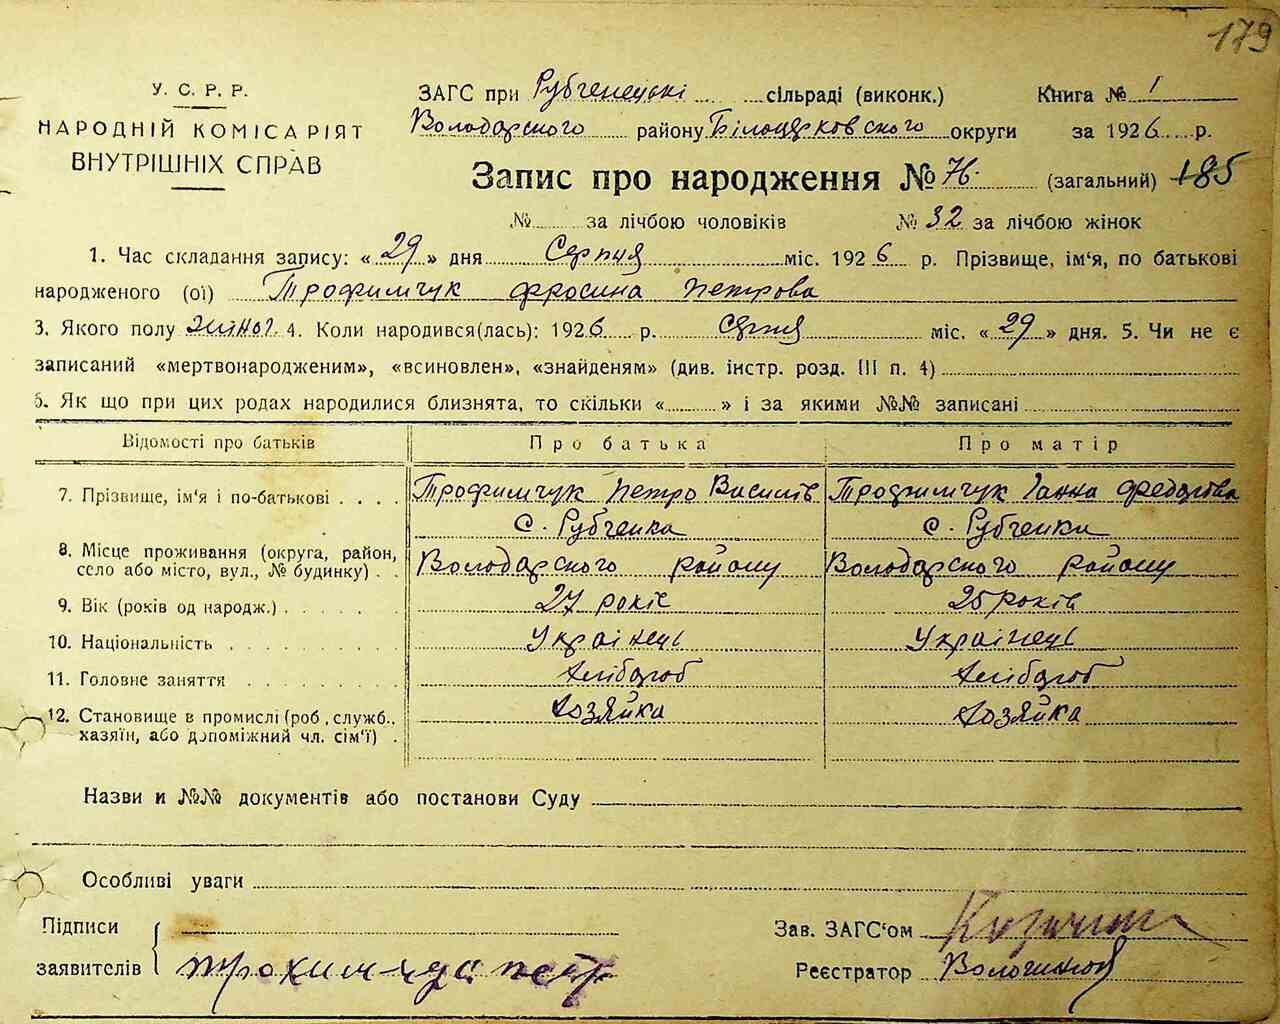 179
У. С. Р. Р.
НАРОДНІЙ КОМІСАРІЯТ
ВНУТРІШНІХ СПРАВ
ЗАГС при Рубченецькі сільраді (виконк.) Книга № 1
Володарского району Білоцерковского округи за 1926 р.
Запис про народження № 76. (загальний) 185
№ за лічбою чоловіків № 32 за лічбою жінок
1. Час складання запису: « 29 » дня Серпня міс. 1926 р. Прізвище, ім'я, по батькові
народженого (ої) Трофимчук Фросина Петрова
3. Якого полу жіног. 4. Коли народився(лась): 1926 р. Серпня міс. « 29 » дня. 5. Чи не є
записаний «мертвонародженим», «всиновлен», «знайденям» (див. інстр. розд. III п. 4)
6. Як що при цих родах народилися близнята, то скільки « » і за якими №№ записані
Відомості про батьків Про батька Про матір
7. Прізвище, ім'я і по-батькові . . . . Трофимчук Петро Василів Трофимчук Ганна Федорова
с. Рубченка с. Рубченка
8. Місце проживання (округа, район,
село або місто, вул., № будинку) . . Володарского району Володарского району
9. Вік (років од народж.) 27 років 25 років
10. Національність Українець Українець
11. Головне заняття Хлібороб Хлібороб
12. Становище в промислі (роб., служб., Хозяйка Хозяйка
хазяїн, або допоміжний чл. сім'ї) .
Назви и №№ документів або постанови Суду
Особливі уваги
Підписи
заявителів
Зав. ЗАГС'ом
Реєстратор